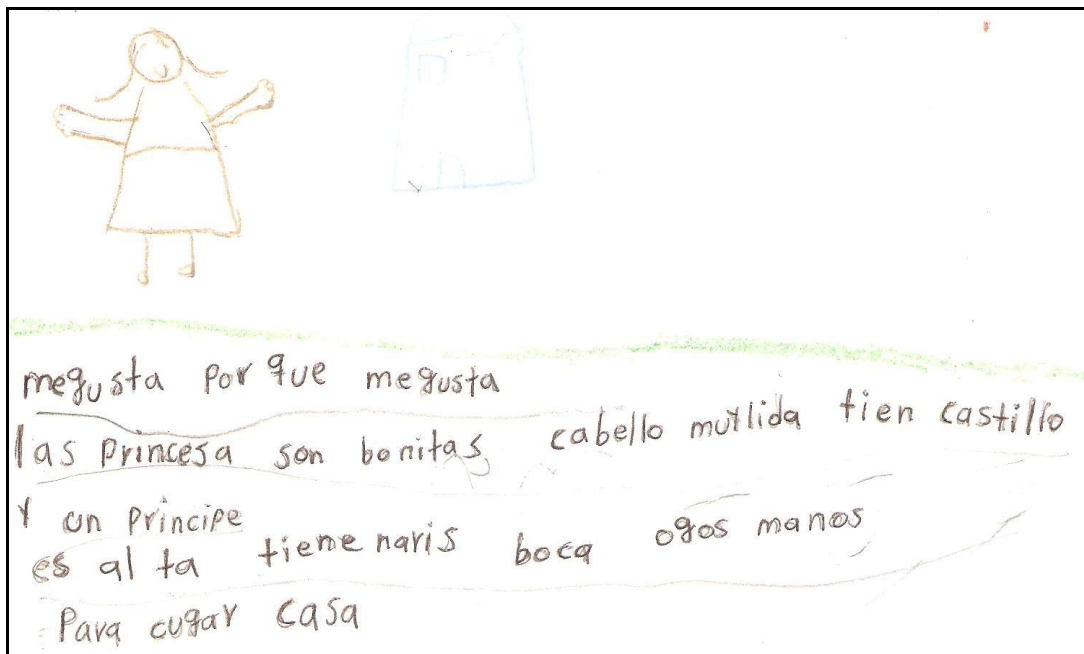 megusta por que megusta
las princesa son bonitas cabello mutlida tien castillo
Y un principe
es al ta tiene naris boca ogos manos
Para cugar casa